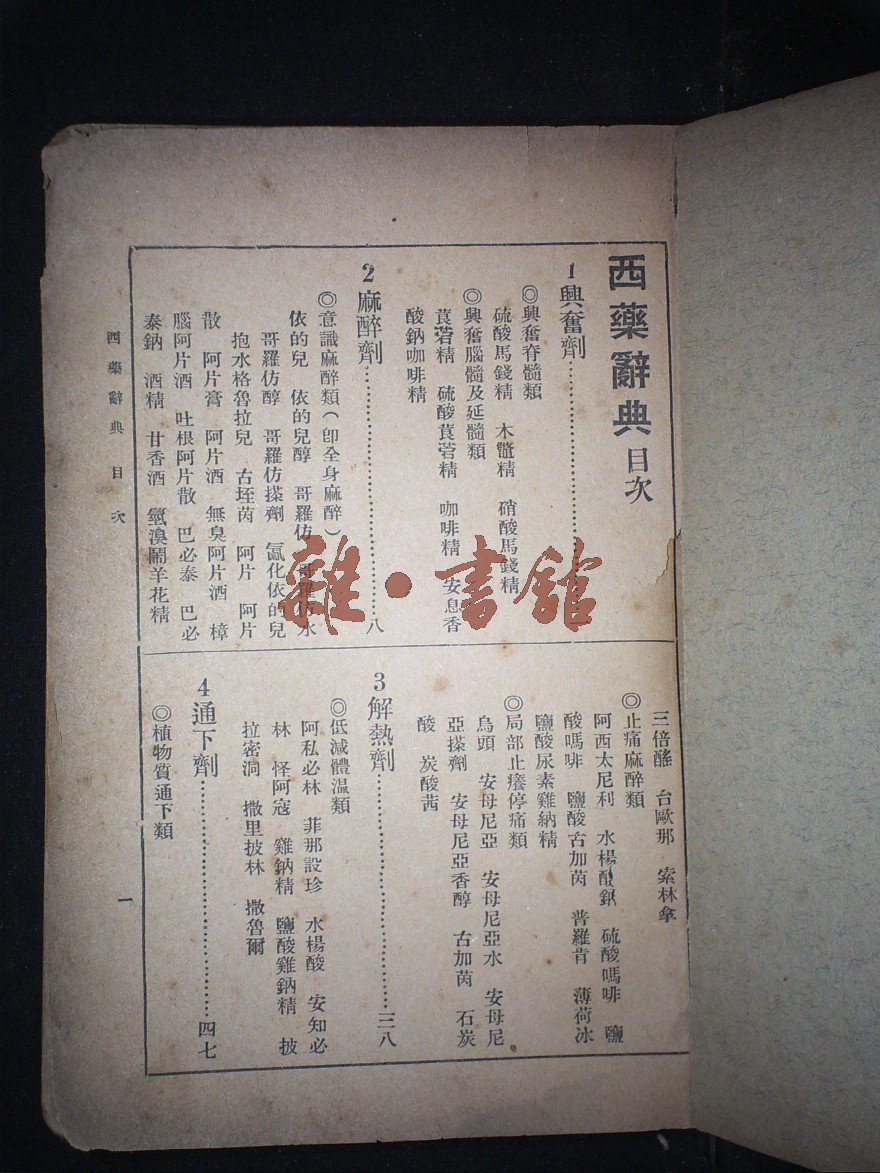 西藥辭典目次
1 興奮劑
◎興奮脊髓類
硫酸馬錢精 木鼈精 硝酸馬錢精
◎興奮腦髓及延髓類
莨菪精 硫酸莨菪精 咖啡精 安息香
酸鈉咖啡精
2 麻醉劑……八
◎意識麻醉類(卽全身麻醉)
依的兒 依的兒醇 哥羅仿 哥羅仿水
哥羅仿醇 哥羅仿搽劑 氯化依的兒
抱水格魯拉兒 古垤茵 阿片 阿片
散 阿片膏 阿片酒 無臭阿片酒 樟
腦阿片酒 吐根阿片散 巴必泰 巴必
泰鈉 酒精 甘香酒 氫溴鬧羊花精
三倍醚 台歐那 索林拿
◎止痛麻醉類
阿西太尼利 水楊酸 硫酸嗎啡 鹽
酸嗎啡 鹽酸古加茵 普羅肯 薄荷冰
鹽酸尿素雞納精
◎局部止癢停痛類
烏頭 安母尼亞 安母尼亞水 安母尼
亞搽劑 安母尼亞香醇 古加茵 石炭
酸 炭酸茜
3 解熱劑……三八
◎低減體溫類
阿私必林 菲那設珍 水楊酸 安知必
林 怪阿寇 雞鈉精 鹽酸雞鈉精 披
拉密洞 撒里披林 撒魯爾
4 通下劑……四七
◎植物質通下類
西藥辭典 目次
一
雜·書館